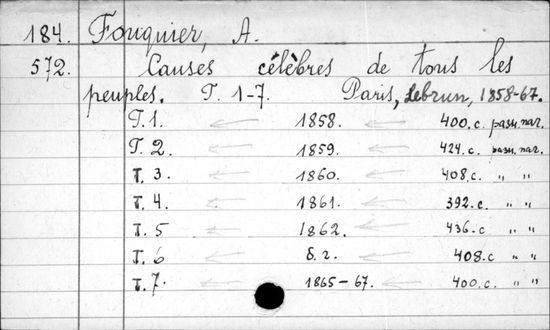 184. Fouquier, A.
572. Causes célèbres de tous les
peuples. T. 1-7. Paris, Lebrun, 1858-67.
T. 1. 1858. 400.c. разн. паг.
T. 2. 1859. 424.c. разн. паг.
T. 3. 1860. 408.c. " "
T. 4. 1861. 392.c. " "
T. 5 1862. 436.c " "
T. 6 б. г. 408.c " "
T. 7. 1865-67. 400.c. " "